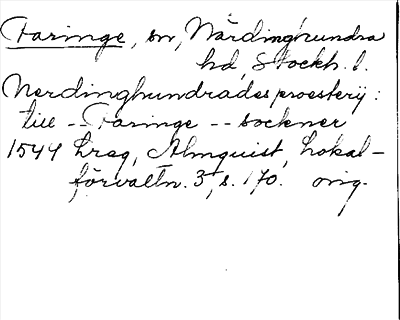 Faringe, sn, Närdinghundra
hd, Stockh. l.
Nerdinghundrades proesterij:
till - Faringe -- sockner
1544 hrag, Almquist, Lokal-
förvaltn. 3, s. 170. orig.